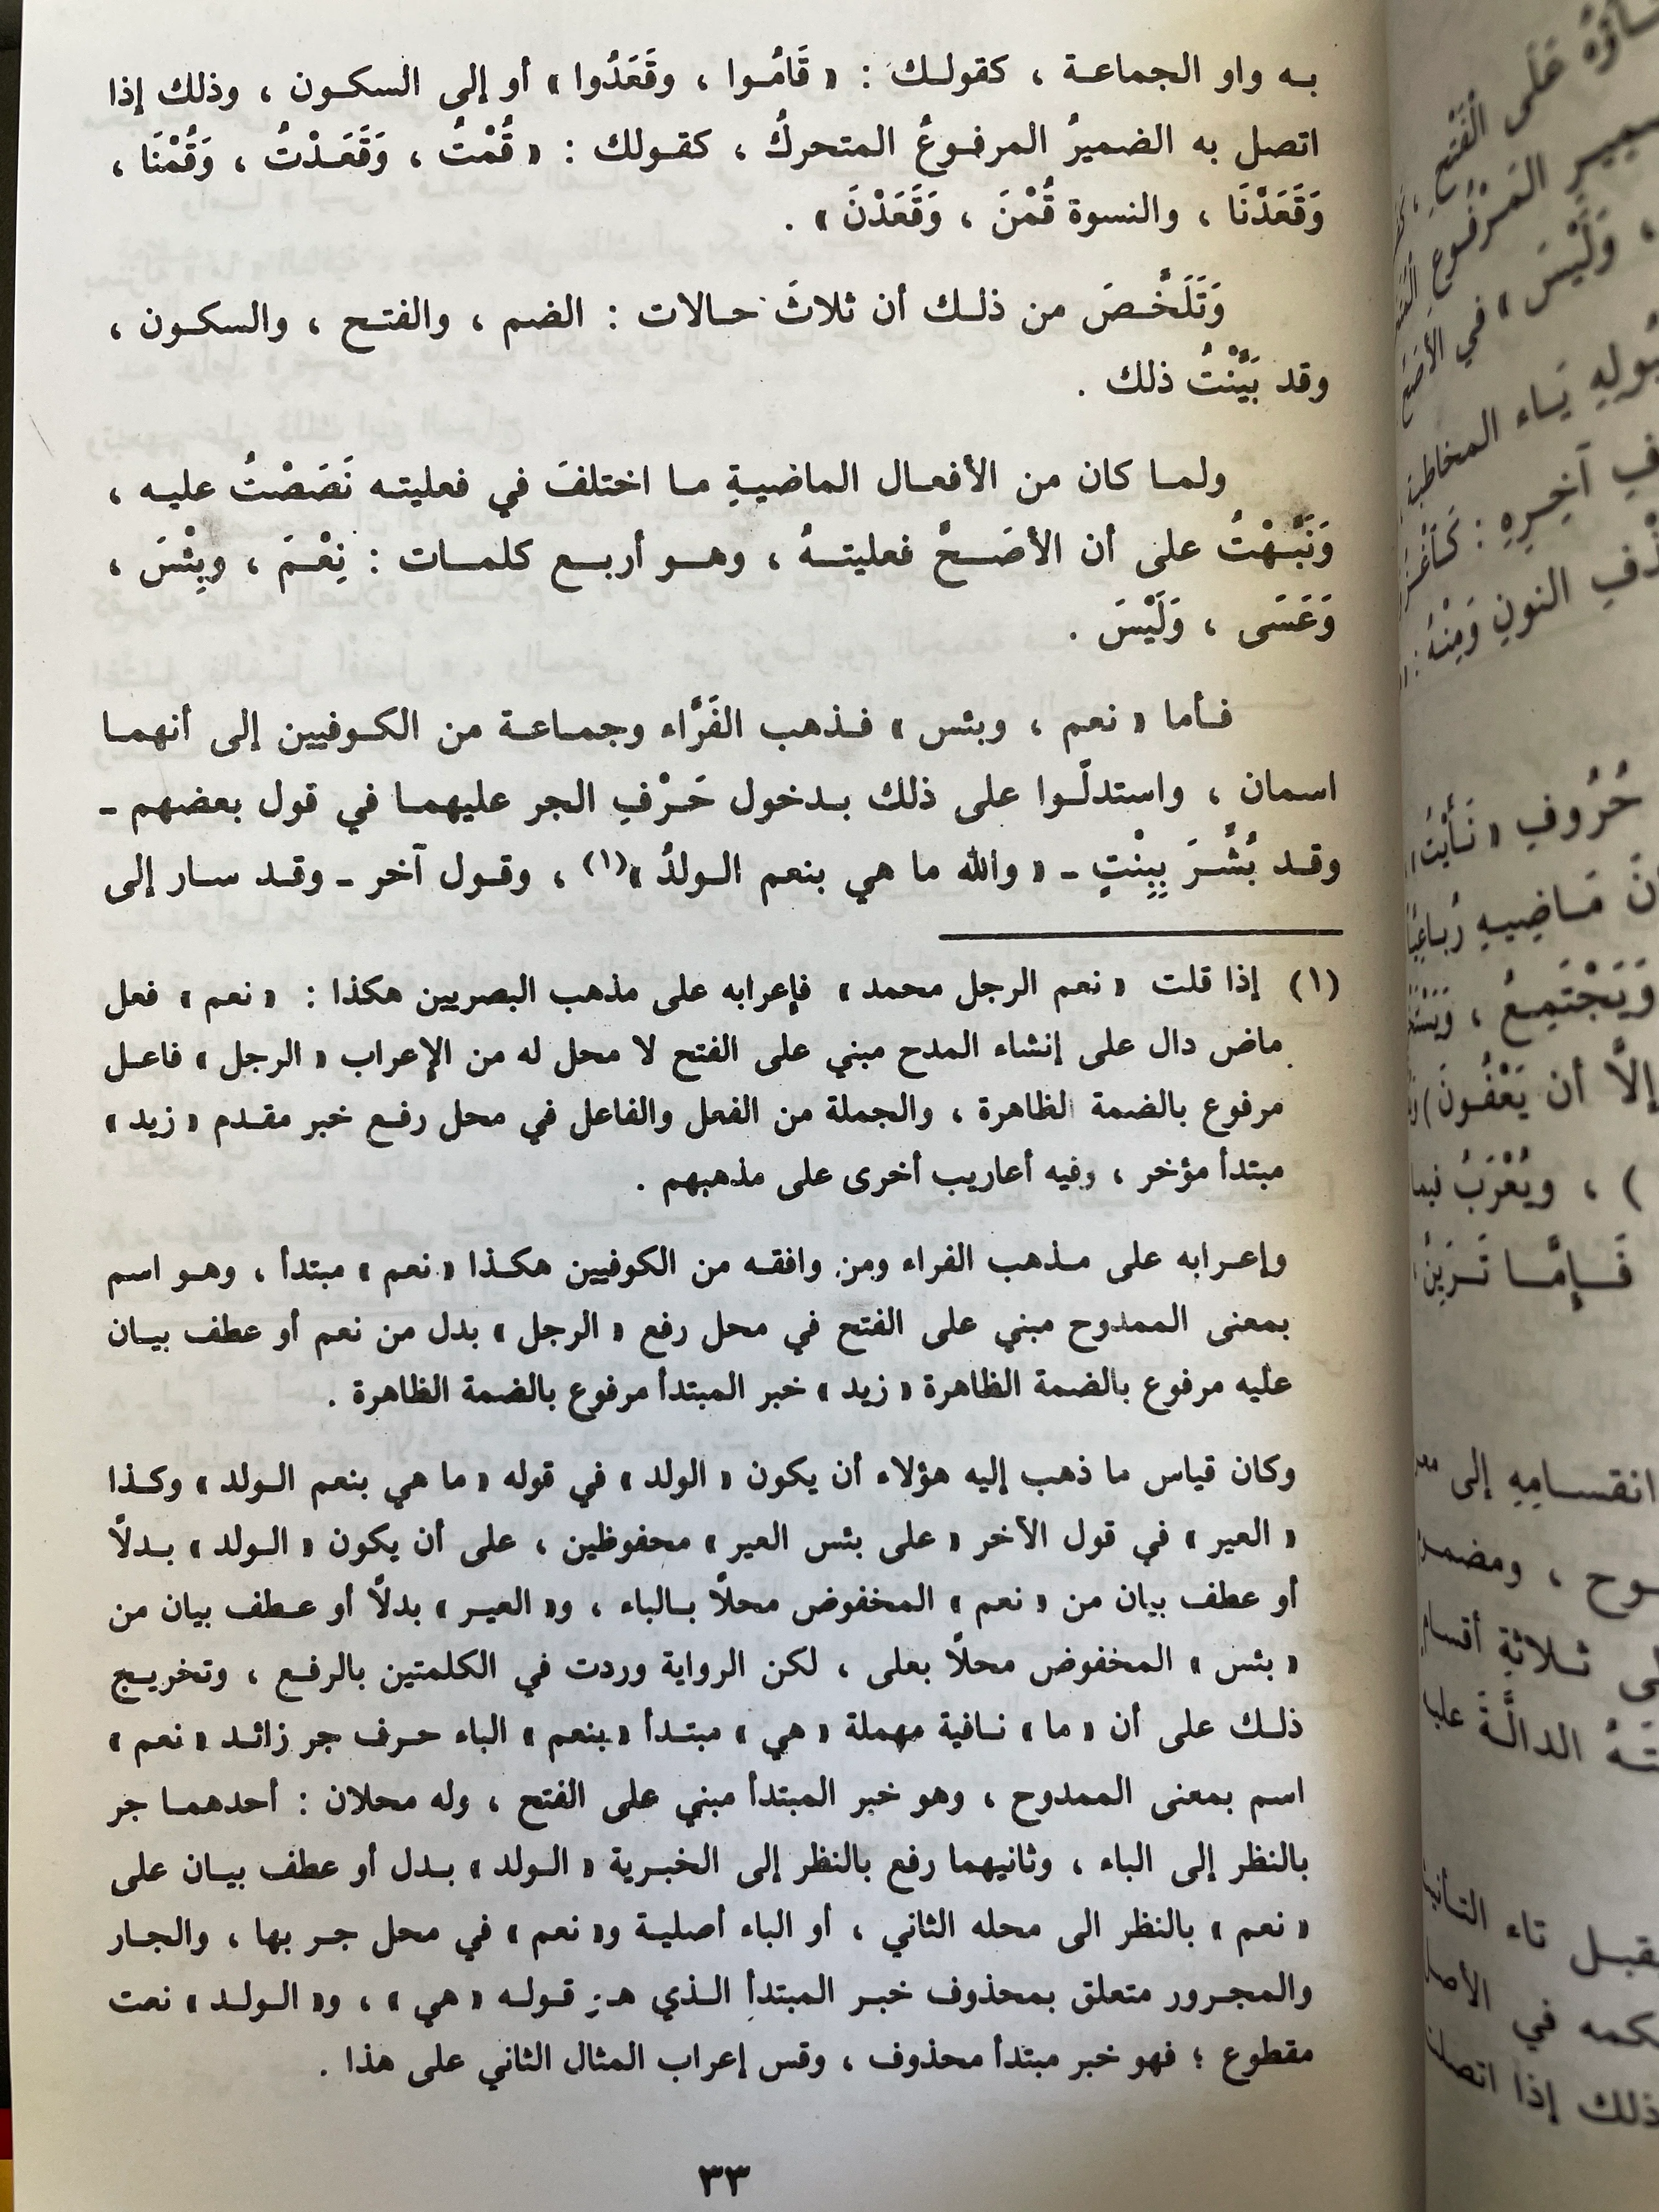 به واو الجماعة ، كقولك : « قَامُوا ، وقَعَدُوا » أو إلى السكون ، وذلك إذا
اتصل به الضميرُ المرفوعُ المتحركُ ، كقولك : « قُمْتُ ، وَقَعَدْتُ ، وَقُمْنَا ،
وَقَعَدْنَا ، والنسوة قُمْنَ ، وَقَعَدْنَ » .
وَتَلَخَّصَ من ذلك أن ثلاثَ حالات : الضم ، والفتح ، والسكون ،
وقد بَيَّنْتُ ذلك .
ولما كان من الأفعال الماضيةِ ما اختلفَ في فعليته نَصَصْتُ عليه ،
وَنَبَّهْتُ على أن الأصَحَّ فعليتهُ ، وهو أربع كلمات : نِعْمَ ، وبِئْسَ ،
وَعَسَى ، وَلَيْسَ .
فأما « نعم ، وبئس » فذهب الفَرَّاء وجماعة من الكوفيين إلى أنهما
اسمان ، واستدلّوا على ذلك بدخول حَرْفِ الجر عليهما في قول بعضهم -
وقد بُشِّرَ بِبِنْتٍ - « والله ما هي بنعم الولدُ »(١) ، وقول آخر - وقد سار إلى
(١) إذا قلت « نعم الرجل محمد » فإعرابه على مذهب البصريين هكذا : « نعم » فعل
ماض دال على إنشاء المدح مبني على الفتح لا محل له من الإعراب « الرجل » فاعل
مرفوع بالضمة الظاهرة ، والجملة من الفعل والفاعل في محل رفع خبر مقدم « زيد »
مبتدأ مؤخر ، وفيه أعاريب أخرى على مذهبهم .
وإعرابه على مذهب الفراء ومن وافقه من الكوفيين هكذا « نعم » مبتدأ ، وهو اسم
بمعنى الممدوح مبني على الفتح في محل رفع « الرجل » بدل من نعم أو عطف بيان
عليه مرفوع بالضمة الظاهرة « زيد » خبر المبتدأ مرفوع بالضمة الظاهرة .
وكان قياس ما ذهب إليه هؤلاء أن يكون « الولد » في قوله « ما هي بنعم الولد » وكذا
« العير » في قول الآخر « على بئس العير » محفوظين ، على أن يكون « الولد » بدلًا
أو عطف بيان من « نعم » المخفوض محلًا بالباء ، و« العير » بدلًا أو عطف بيان من
« بئس » المخفوض محلًا بعلى ، لكن الرواية وردت في الكلمتين بالرفع ، وتخريج
ذلك على أن « ما » نافية مهملة « هي » مبتدأ « بنعم » الباء حرف جر زائد « نعم »
اسم بمعنى الممدوح ، وهو خبر المبتدأ مبني على الفتح ، وله محلان : أحدهما جر
بالنظر إلى الباء ، وثانيهما رفع بالنظر إلى الخبرية « الولد » بدل أو عطف بيان على
« نعم » بالنظر الى محله الثاني ، أو الباء أصلية و« نعم » في محل جر بها ، والجار
والمجرور متعلق بمحذوف خبر المبتدأ الذي هو قوله « هي » ، و« الولد » نعت
مقطوع ؛ فهو خبر مبتدأ محذوف ، وقس إعراب المثال الثاني على هذا .
٣٣
عَلَى الْفَتْحِ
المَرْفُوعِ
، وَلَيْسَ » في الأصَحِّ
يَاء المخاطبة
آخِرِهِ :
النونِ وَمِنْهُ :
حُرُوفِ « نَأَيْتُ »
مَاضِيهِ رُبَاعِيًّا
وَيَجْتَمِعُ ،
إلَّا أن يَعْفُونَ )
) ، ويُعْرَبُ فيما
فَإِمَّا تَرَيِنَّ
انقسامِهِ إلى
ثلاثةِ أقسام
الدالَّةَ عليها
تاء التأنيث
في الأصل
ذلك إذا اتصلت